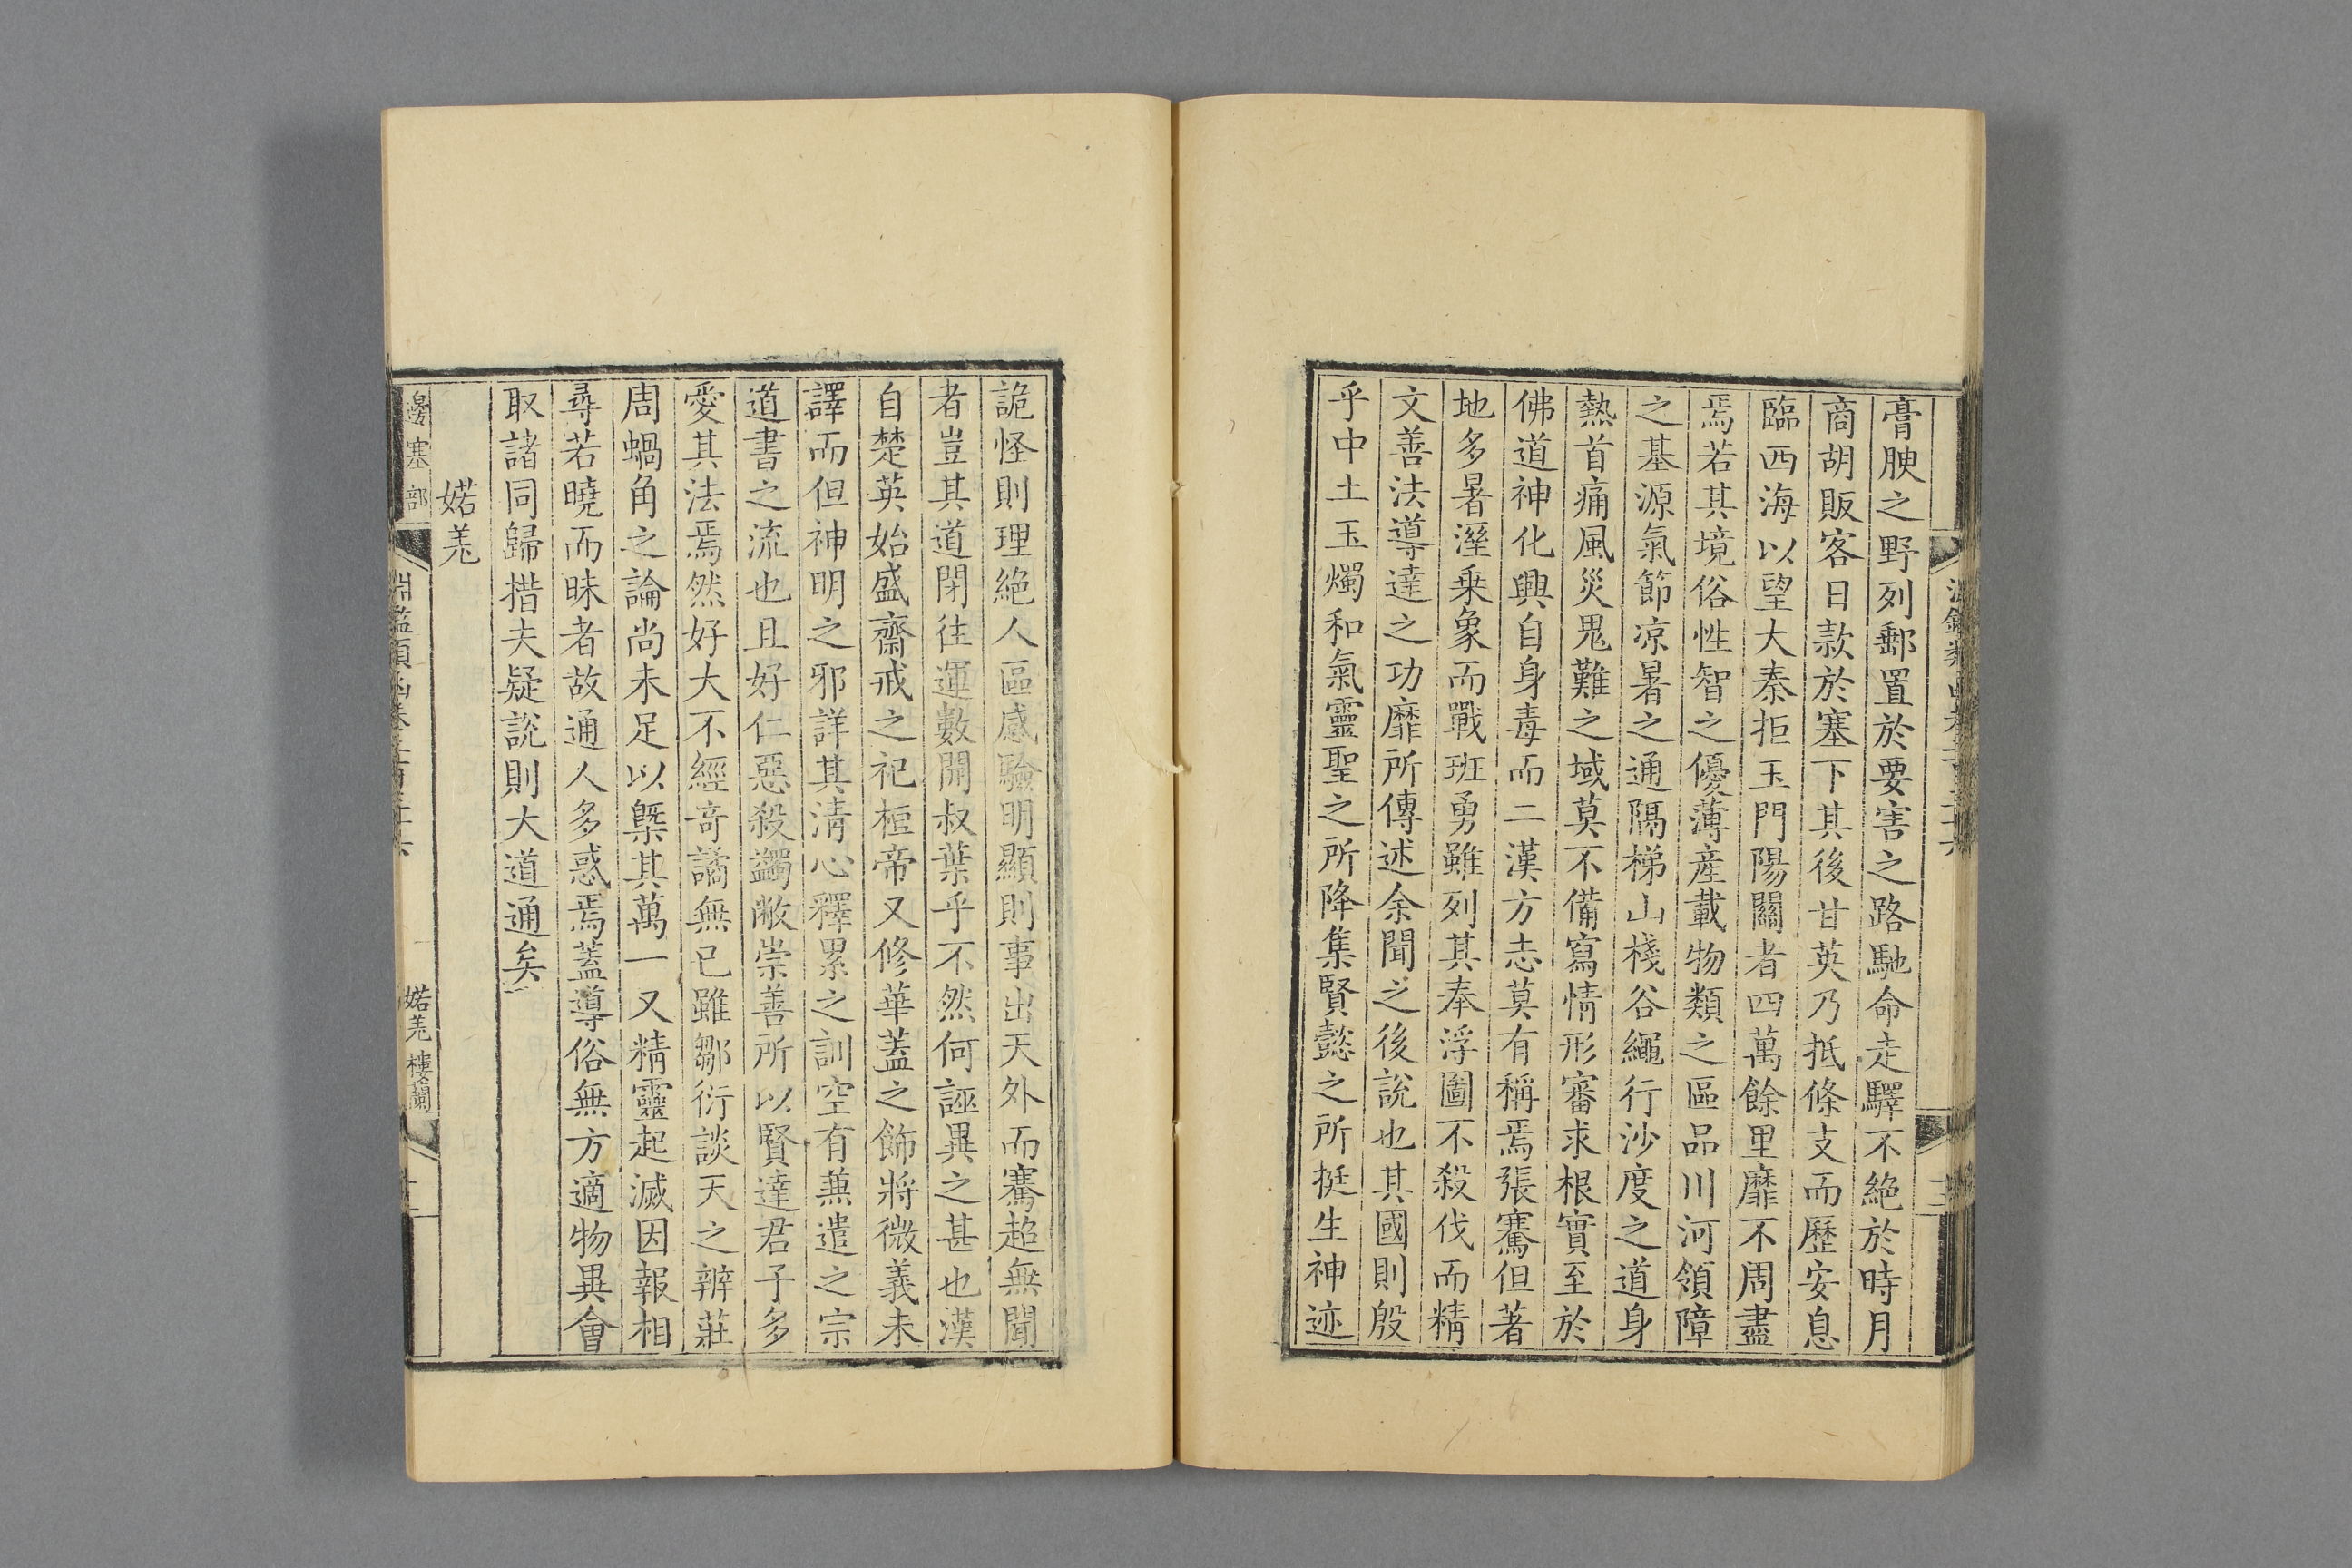 膏腴之野列郵置於要害之路馳命走驛不絶於時月
商胡販客日款於塞下其後甘英乃抵條支而歷安息
臨西海以望大秦拒玉門陽關者四萬餘里靡不周盡
焉若其境俗性智之優薄産載物類之區品川河領障
之基源氣節凉暑之通隔梯山棧谷繩行沙度之道身
熱首痛風災鬼難之域莫不備寫情形審求根實至於
佛道神化興自身毒而二漢方志莫有稱焉張騫但著
地多暑溼乗象而戰班勇雖列其奉浮圖不殺伐而精
文善法導達之功靡所傳述余聞之後説也其國則殷
乎中土玉燭和氣靈聖之所降集賢懿之所挺生神迹
詭怪則理絶人區感驗明顯則事出天外而騫超無聞
者豈其道閉往運數開叔葉乎不然何誣異之甚也漢
自楚英始盛齋戒之祀桓帝又修華蓋之飾將微義未
譯而但神明之邪詳其清心釋累之訓空有兼遣之宗
道書之流也且好仁惡殺蠲敝崇善所以賢達君子多
愛其法焉然好大不經奇譎無已雖鄒衍談天之辨莊
周蝸角之論尚未足以槩其萬一又精靈起滅因報相
尋若曉而昧者故通人多惑焉蓋導俗無方適物異會
取諸同歸措夫疑説則大道通矣
婼羌
邊塞部
婼羌 樓蘭